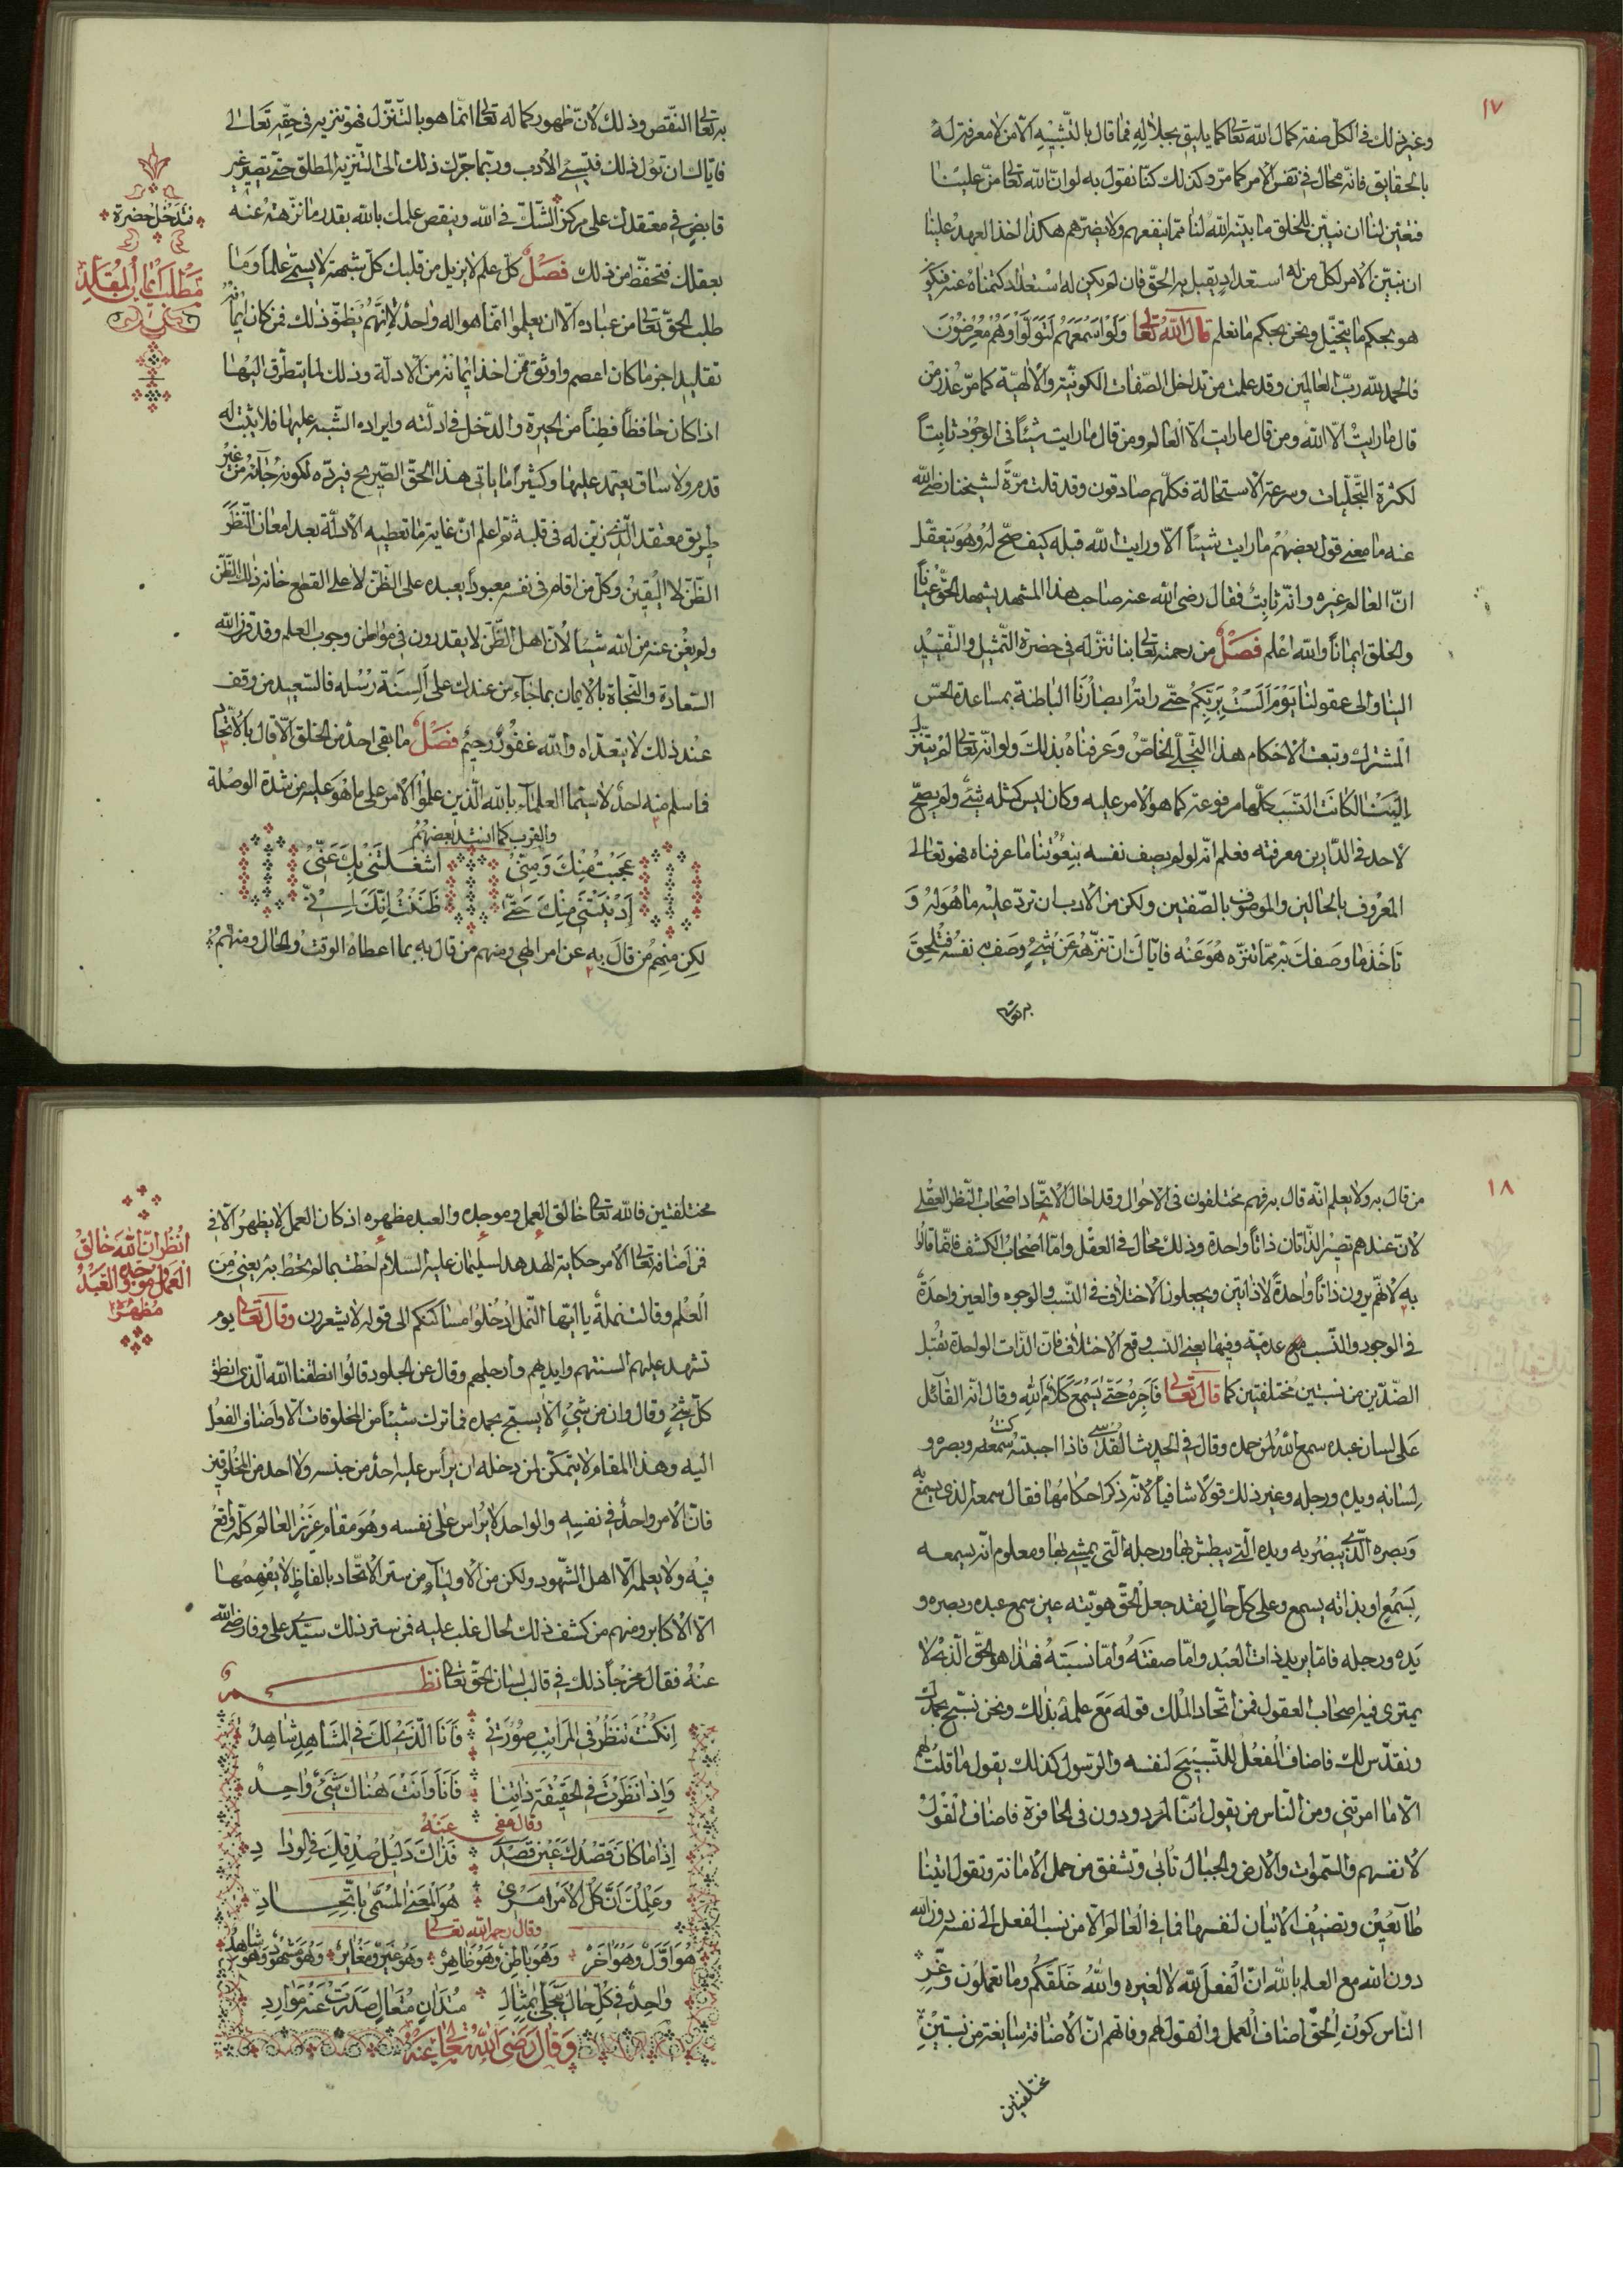 ١٧
وغير ذلك في الكل صفة كمال الله تعالى كما يليق بجلاله فما قال بالتشبيه الا من لا معرفة له
بالحقايق فانه محال في نفس الامر كما مر وكذلك كنا نقول به لو ان الله تعالى من علينا
فتعين لنا ان نبين للخلق ما بينه الله لنا مما ينفعهم ولا يضرهم هكذا اخذ العهد علينا
ان نبين الامر لكل من له استعداد يقبل به الحق فان لم يكن له استعداد كتمناه عنه فيكون
هو بحكم ما يتخيل ونحن بحكم ما نعلم قال الله تعالى ولو اسمعهم لتولوا وهم معرضون
فالحمد لله رب العالمين وقد علمت من تداخل الصفات الكونية والالهية كما مر عذر من
قال ما رايت الا الله ومن قال ما رايت الا العالم ومن قال ما رايت شيئاً في الوجود ثابتاً
لكثرة التجليات وسرعة الاستحالة فكلهم صادقون وقد قلت مرة لشيخنا رضي الله
عنه ما معنى قول بعضهم ما رايت شيئاً الا ورايت الله قبله كيف صح له وهو يتعقل
ان العالم غيره وانه ثابت فقال رضى الله عنه صاحب هذا المشهد يشهد الحق عيناً
والخلق ايماناً والله اعلم فصل من رحمته تعالى بنا تنزله في حضرة التمثيل والتقييد
الينا والى عقولنا يوم الست بربكم حتى راته ابصارنا الباطنة بمساعدة الحس
المشترك وتبعت الاحكام هذا التجلى الخاص وعرفناه بذلك ولو انه تعالى لم يتنزل
الينا لكانت النسب كلها مرفوعة كما هو الامر عليه وكان ليس كمثله شئ ولم يصح
لاحد في الدارين معرفته فعلم انه لو لم يصف نفسه بنعوتنا ما عرفناه فهو تعالى
المعروف بالحالين والموصوف بالصفتين ولكن من الادب ان ترد عليه ما هو له و
تاخذ ما وصفك به مما تنزه هو عنه فاياك ان تنزهه عن شئ وصف به نفسه فتلحق
به تعالى
به تعالى النقص وذلك لان ظهور كماله تعالى انما هو بالتنزل فهو تنزيه في حقه تعالى
فاياك ان تول ذلك فتسئ الادب وربما جرك ذلك الى التنزيه المطلق حتى تصير غير
قابض في معتقدك على مركز الشك في الله وينقص علمك بالله بقدر ما نزهته عنه
بعقلك فتحفظ من ذلك فصل كل علم لا يزيل من قلبك كل شبهة لا يسمى علماً وما
طلب الحق تعالى من عباده الا ان يعلموا انما هو اله واحد لانهم يظنوا ذلك فمن كان ايمانه
تقليداً جزماً كان اعصم واوثق ممن اخذ ايمانه من الادلة وذلك لما يتطرق اليها
اذا كان حافظاً فطناً من الحيرة والدخل في ادلته وايراده الشبه عليها فلا يثبت له
قدم ولا ساق يعتمد عليها وكثيراً ما ياتي هذا الحق الصريح فيرده لكونه جاءه من غير
طريق معتقد الذي زين له في قلبه ثم اعلم ان غاية ما تعطيه الادلة بعد امعان النظر
الظن لا اليقين وكل من اقام في نفسه معبوداً يعبده على الظن لا على القطع خانه ذلك الظن
ولم يغن عنه من الله شيئاً لان اهل الظن لا يقدرون في مواطن وجوب العلم وقد قرن الله
السعادة والنجاة بالايمان بما جاء من عنده على السنة رسله فالسعيد من وقف
عند ذلك لا يتعداه والله غفور رحيم فصل ما بقى احد من الخلق الا قال بالاتحاد
فما سلم منه احد لا سيما العلماء بالله الذين علموا الامر على ما هو عليه من شدة الوصلة
والقرب كما انشد بعضهم
عجبت منك ومني اشغلتني بك عني
ادنيتني منك حتى ظننت انك اني
لكن منهم من قال به عن امر الهي ومنهم من قال به بما اعطاه الوقت والحال ومنهم
فتدخل حضرة
مطلب ايمان المقلد
١٨
من قال به ولا يعلم انه قال به فهم مختلفون في الاحوال وقد احال الاتحاد اصحاب النظر العقلي
لان عندهم تصير الذاتان ذاتاً واحدة وذلك محال في العقل واما اصحاب الكشف فانما قالوا
به لانهم يرون ذاتاً واحدةً لا ذاتين ويجعلون الاختلاف في النسب والوجوه والعين واحدة
في الوجود والنسب عدمية وفيها يعني النسب وقع الاختلاف فان الذات الواحدة تقبل
الضدين من نسبتين مختلفتين كما قال تعالى فاجره حتى يسمع كلام الله وقال انه القائل
على لسان عبده سمع الله لمن حمده وقال في الحديث القدسي فاذا احببته كنت سمعه وبصره و
لسانه ويده ورجله وغير ذلك قولا شافياً لانه ذكر احكامها فقال سمعه الذي يسمع به
وبصره الذي يبصر به ويده التي يبطش بها ورجله التي يمشي بها ومعلوم انه يسمعه
بسمع او بذاته يسمع وعلى كل حال فقد جعل الحق هويته عين سمع عبده وبصره و
يده ورجله فاما يريد ذات العبد واما صفته واما نسبته فهذا هو الحق الذي لا
يمترى فيه اصحاب العقول فمن اتحاد الملك قوله مع علمه بذلك ونحن نسبح بحمدك
ونقدس لك فاضاف الفعل للتسبيح لنفسه والرسول كذلك يقول ما قلت لهم
الا ما امرتني ومن الناس من يقول ائنا لمردودون في الحافرة فاضاف القول
لانفسهم والسموات والارض والجبال تابى وتشفق من حمل الامانة وتقول اتينا
طائعين وتضيف الاتيان لنفسها فما في العالم الا من نسب الفعل الى نفسه دون الله
دون الله مع العلم بالله ان الفعل لله لا لغيره والله خلقكم وما تعملون وغر
الناس كون الحق اضاف العمل والقول لهم وفاتهم ان الاضافة سايغة من نسبتين
مختلفتين
مختلفتين فالله تعالى خالق العمل وموجده والعبد مظهره اذ كان العمل لا يظهر الا في
فمن اضافة تعالى الامر حكاية الهدهد لسليمان عليه السلام احطت بما لم تحط به يعني من
العلم وقالت نملة يا ايها النمل ادخلوا مساكنكم الى قوله لا يشعرون وقال تعالى يوم
تشهد عليهم السنتهم وايديهم وارجلهم وقال عن الجلود قالوا انطقنا الله الذي انطق
كل شئ وقال وان من شئ الا يسبح بحمده فما ترك شيئاً من المخلوقات الا واضاف الفعل
اليه وهذا المقام لا يتمكن لمن دخله ان يراس عليه احد من جنسه ولا احد من المخلوقين
فان الامر واحد في نفسه والواحد لا يراس على نفسه وهو مقام عزيز العالم كله واقع
فيه ولا يعلمه الا اهل الشهود ولكن من الاولياء من ستر الاتحاد بالفاظ لا يفهمها
الا الاكابر ومنهم من كشف ذلك لحال غلب عليه فمن ستر ذلك سيدي على وفا رضي الله
عنه فقال مخرجاً ذلك في قالب لسان الحق تعالى نظم
ان كنت تنظر في المراتب صورتي فانا الذي لك في المشاهد شاهد
واذا نظرت في الحقيقة ذاتنا فانا وانت هناك شئ واحد
وقال رضي عنه
اذا ما كان قصدك غير قصدي فذاك دليل صدقك في الوداد
وعلمك ان كل الامر امري هو المعنى المسمى باتحاد
وقال رحمه الله تعالى
هو اول وهو اخر وهو باطن وهو ظاهر وهو غير ومغاير وهو مشهود وهو شاهد
واحد في كل حال يتجلى بمثال متدان متعال صدرت عنه موارد
وقال رضى الله تعالى عنه
انظر ان الله خالق
العمل وموجده والعبد
مظهره